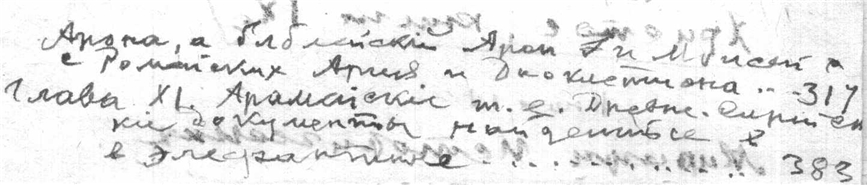 Арона, а библейскiй Арон и Моисей
с Ромейских Ария и Диоклетиана .. 317
Глава XI. Арамейскiе т. е. Древне-еврейск
кiе документы найденные в
в Элефантине ............ 383